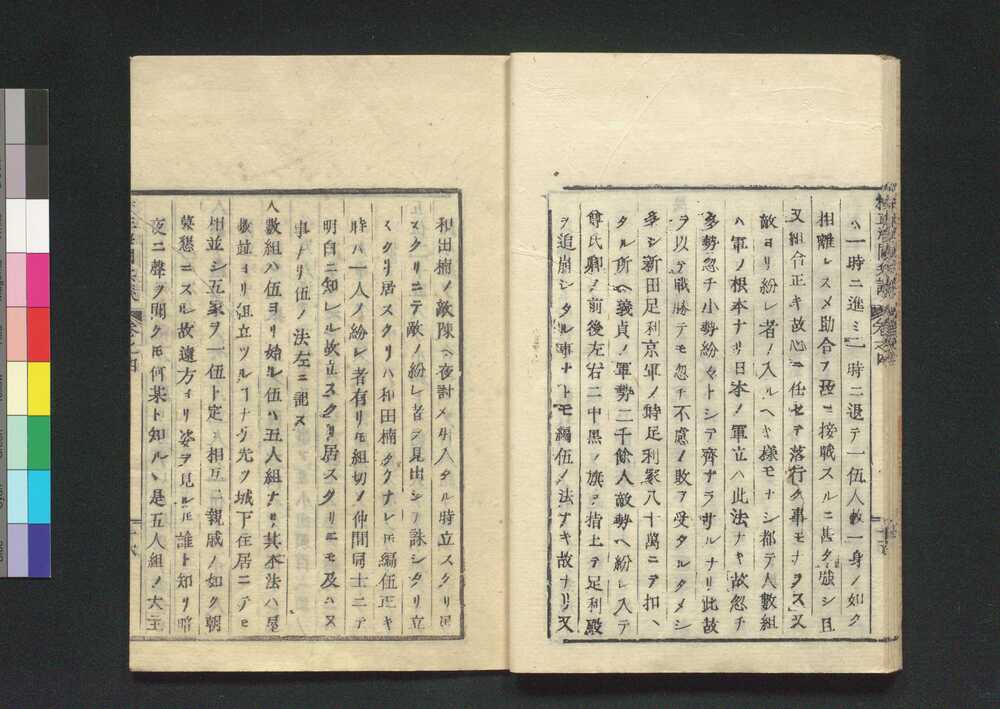 ハ一時ニ進ミ一時ニ退テ一伍人数一身ノ如ク
相離レスメ助合フ殊ニ接戦スルニ甚タ強シ且
又組合正キ故心ニ任セテ落行ク事モナラス又
敵ヨリ紛レ者ノ入ルヘキ様モナシ都テ人数組
ハ軍ノ根本ナリ日本ノ軍立ハ此法ナキ故忽チ
多勢忽チ小勢紛々トシテ齊ナラサルナリ此故
ヲ以テ戦勝テモ忽チ不慮ノ敗ヲ受タルタメシ
多シ新田足利京軍ノ時足利家八十萬ニテ扣ヘ
タル所ヘ義貞ノ軍勢二千餘人敵勢ヘ紛レ入テ
尊氏卿ノ前後左右ニ中黒ノ旗ヲ指上テ足利殿
ヲ追崩シタル事ナトモ編伍ノ法ナキ故ナリ又
和田楠ノ敵陳ヘ夜討メ引入タル時立スクリ居
スクリニテ敵ノ紛レ者ヲ見出シテ誅シタリ立
スクリ居スクリハ和田楠カクナレ𪜈編伍正キ
時ハ一人ノ紛レ者有リ𪜈組切ノ仲間同士ニテ
明白ニ知レル故立スクリ居スクリニモ及ハス
事ナリ伍ノ法左ニ記ス
人数組ハ伍ヨリ始ル伍ハ五人組ナリ其本法ハ屋
敷並ヨリ組立ツルヿナリ先ツ城下住居ニテモ
相並シ五家ヲ一伍ト定メ相互ニ親戚ノ如ク朝
暮懇ニスル故遠方ヨリ姿ヲ見レ𪜈誰ト知リ暗
夜ニ聲ヲ聞ク𪜈何某ト知ル是五人組ノ大主